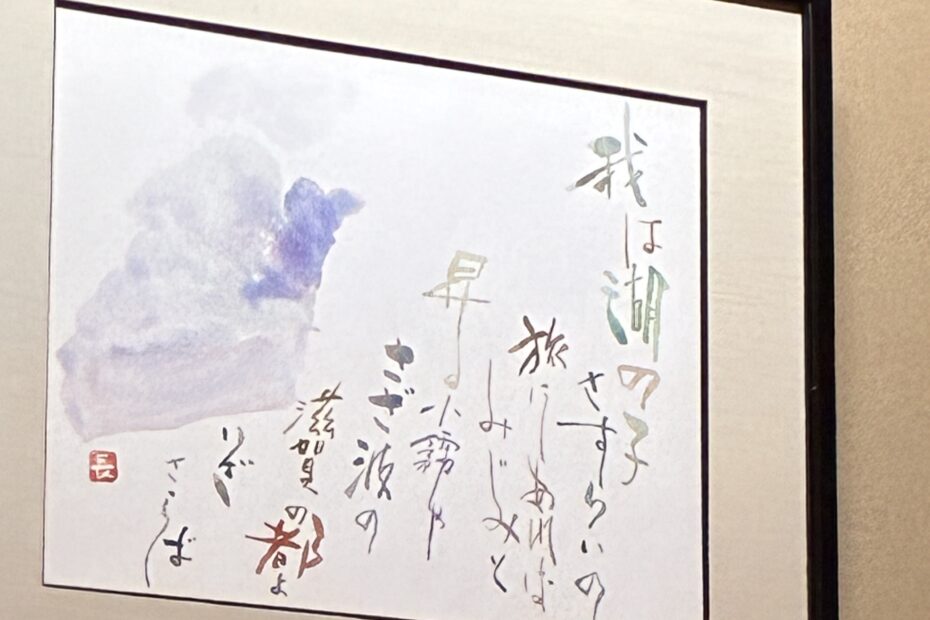 我は湖の子
さすらいの
旅にしあれば
しみじみと
昇る小霧や
さざ波の
滋賀の都よ
いざ
さらば
長